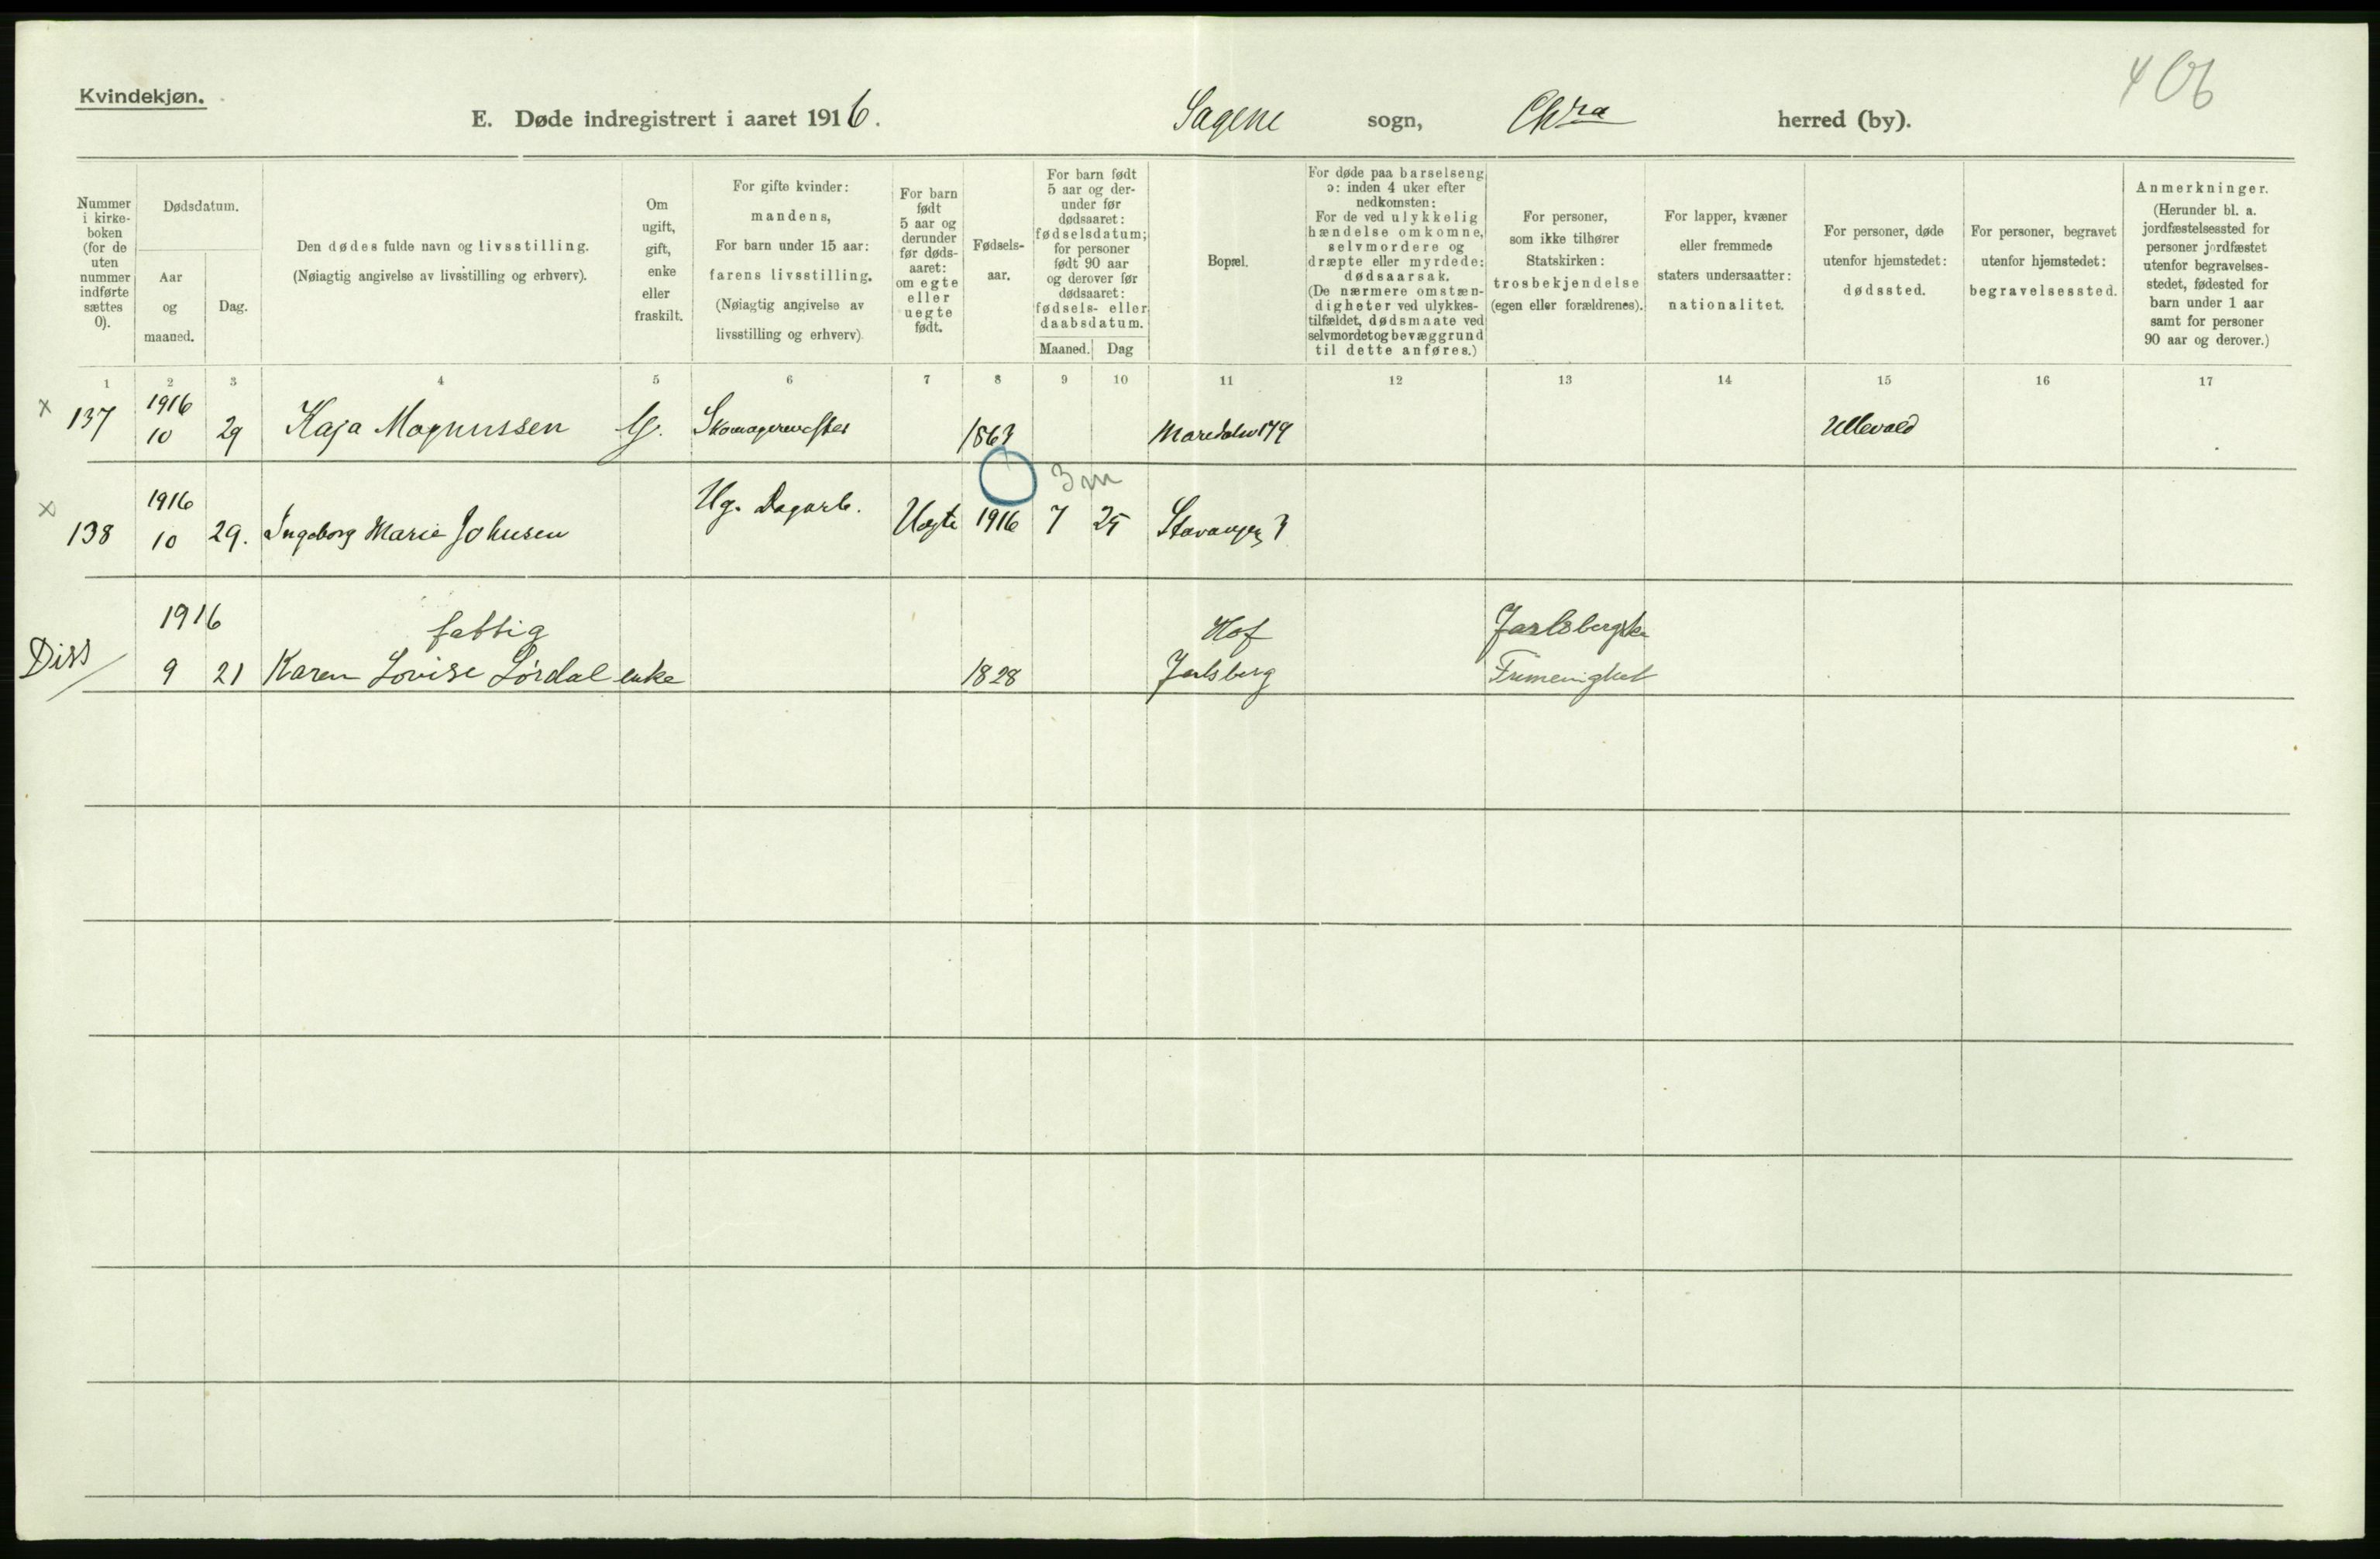 Kvindekjøn.
406
E. Døde indregistrert i aaret 1916. Sagene sogn, Chra herred (by).
Nummer i kirke- boken (for de uten nummer indførte sættes 0).
Dødsdatum.
Aar og maaned.
Dag.
Den dødes fulde navn og livsstilling.
(Nøiagtig angivelse av livsstilling og erhverv).
Om ugift, gift, enke eller fraskilt.
For gifte kvinder:
mandens,
For barn under 15 aar:
farens livsstilling.
(Nøiagtig angivelse av
livsstilling og erhverv).
For barn født 5 aar og derunder før døds- aaret: om egte eller uegte født.
Fødsels- aar.
For barn født 5 aar og der- under før dødsaaret: fødselsdatum; for personer født 90 aar og derover før dødsaaret: fødsels- eller daabsdatum.
Maaned. Dag
Bopæl.
For døde paa barselseng ɔ: inden 4 uker efter nedkomsten:
For de ved ulykkelig hændelse omkomne, selvmordere og dræpte eller myrdede: dødsaarsak.
(De nærmere omstæn- digheter ved ulykkes- tilfældet, dødsmaate ved selvmordet og bevæggrund til dette anføres.)
For personer, som ikke tilhører Statskirken: trosbekjendelse (egen eller forældrenes).
For lapper, kvæner eller fremmede staters undersaatter: nationalitet.
For personer, døde utenfor hjemstedet: dødssted.
For personer, begravet utenfor hjemstedet: begravelsessted.
Anmerkninger.
(Herunder bl. a. jordfæstelsessted for personer jordfæstet utenfor begravelses- stedet, fødested for barn under 1 aar samt for personer 90 aar og derover.)
1 2 3 4 5 6 7 8 9 10 11 12 13 14 15 16 17
x 137 1916 10 29 Kaja Magnussen G. Skomagermester 1863 Maridalsv 179 Ullevold
3 m
x 138 1916 10 29. Ingeborg Marie Johnsen Ug. Dagarb. Uegte 1916 7 25 Stavangerg 3
1916 fattig Hof Jarlsbergske
Diss 9 21 Karen Lovise Sørdal enke 1828 Jarlsberg Frimenighet